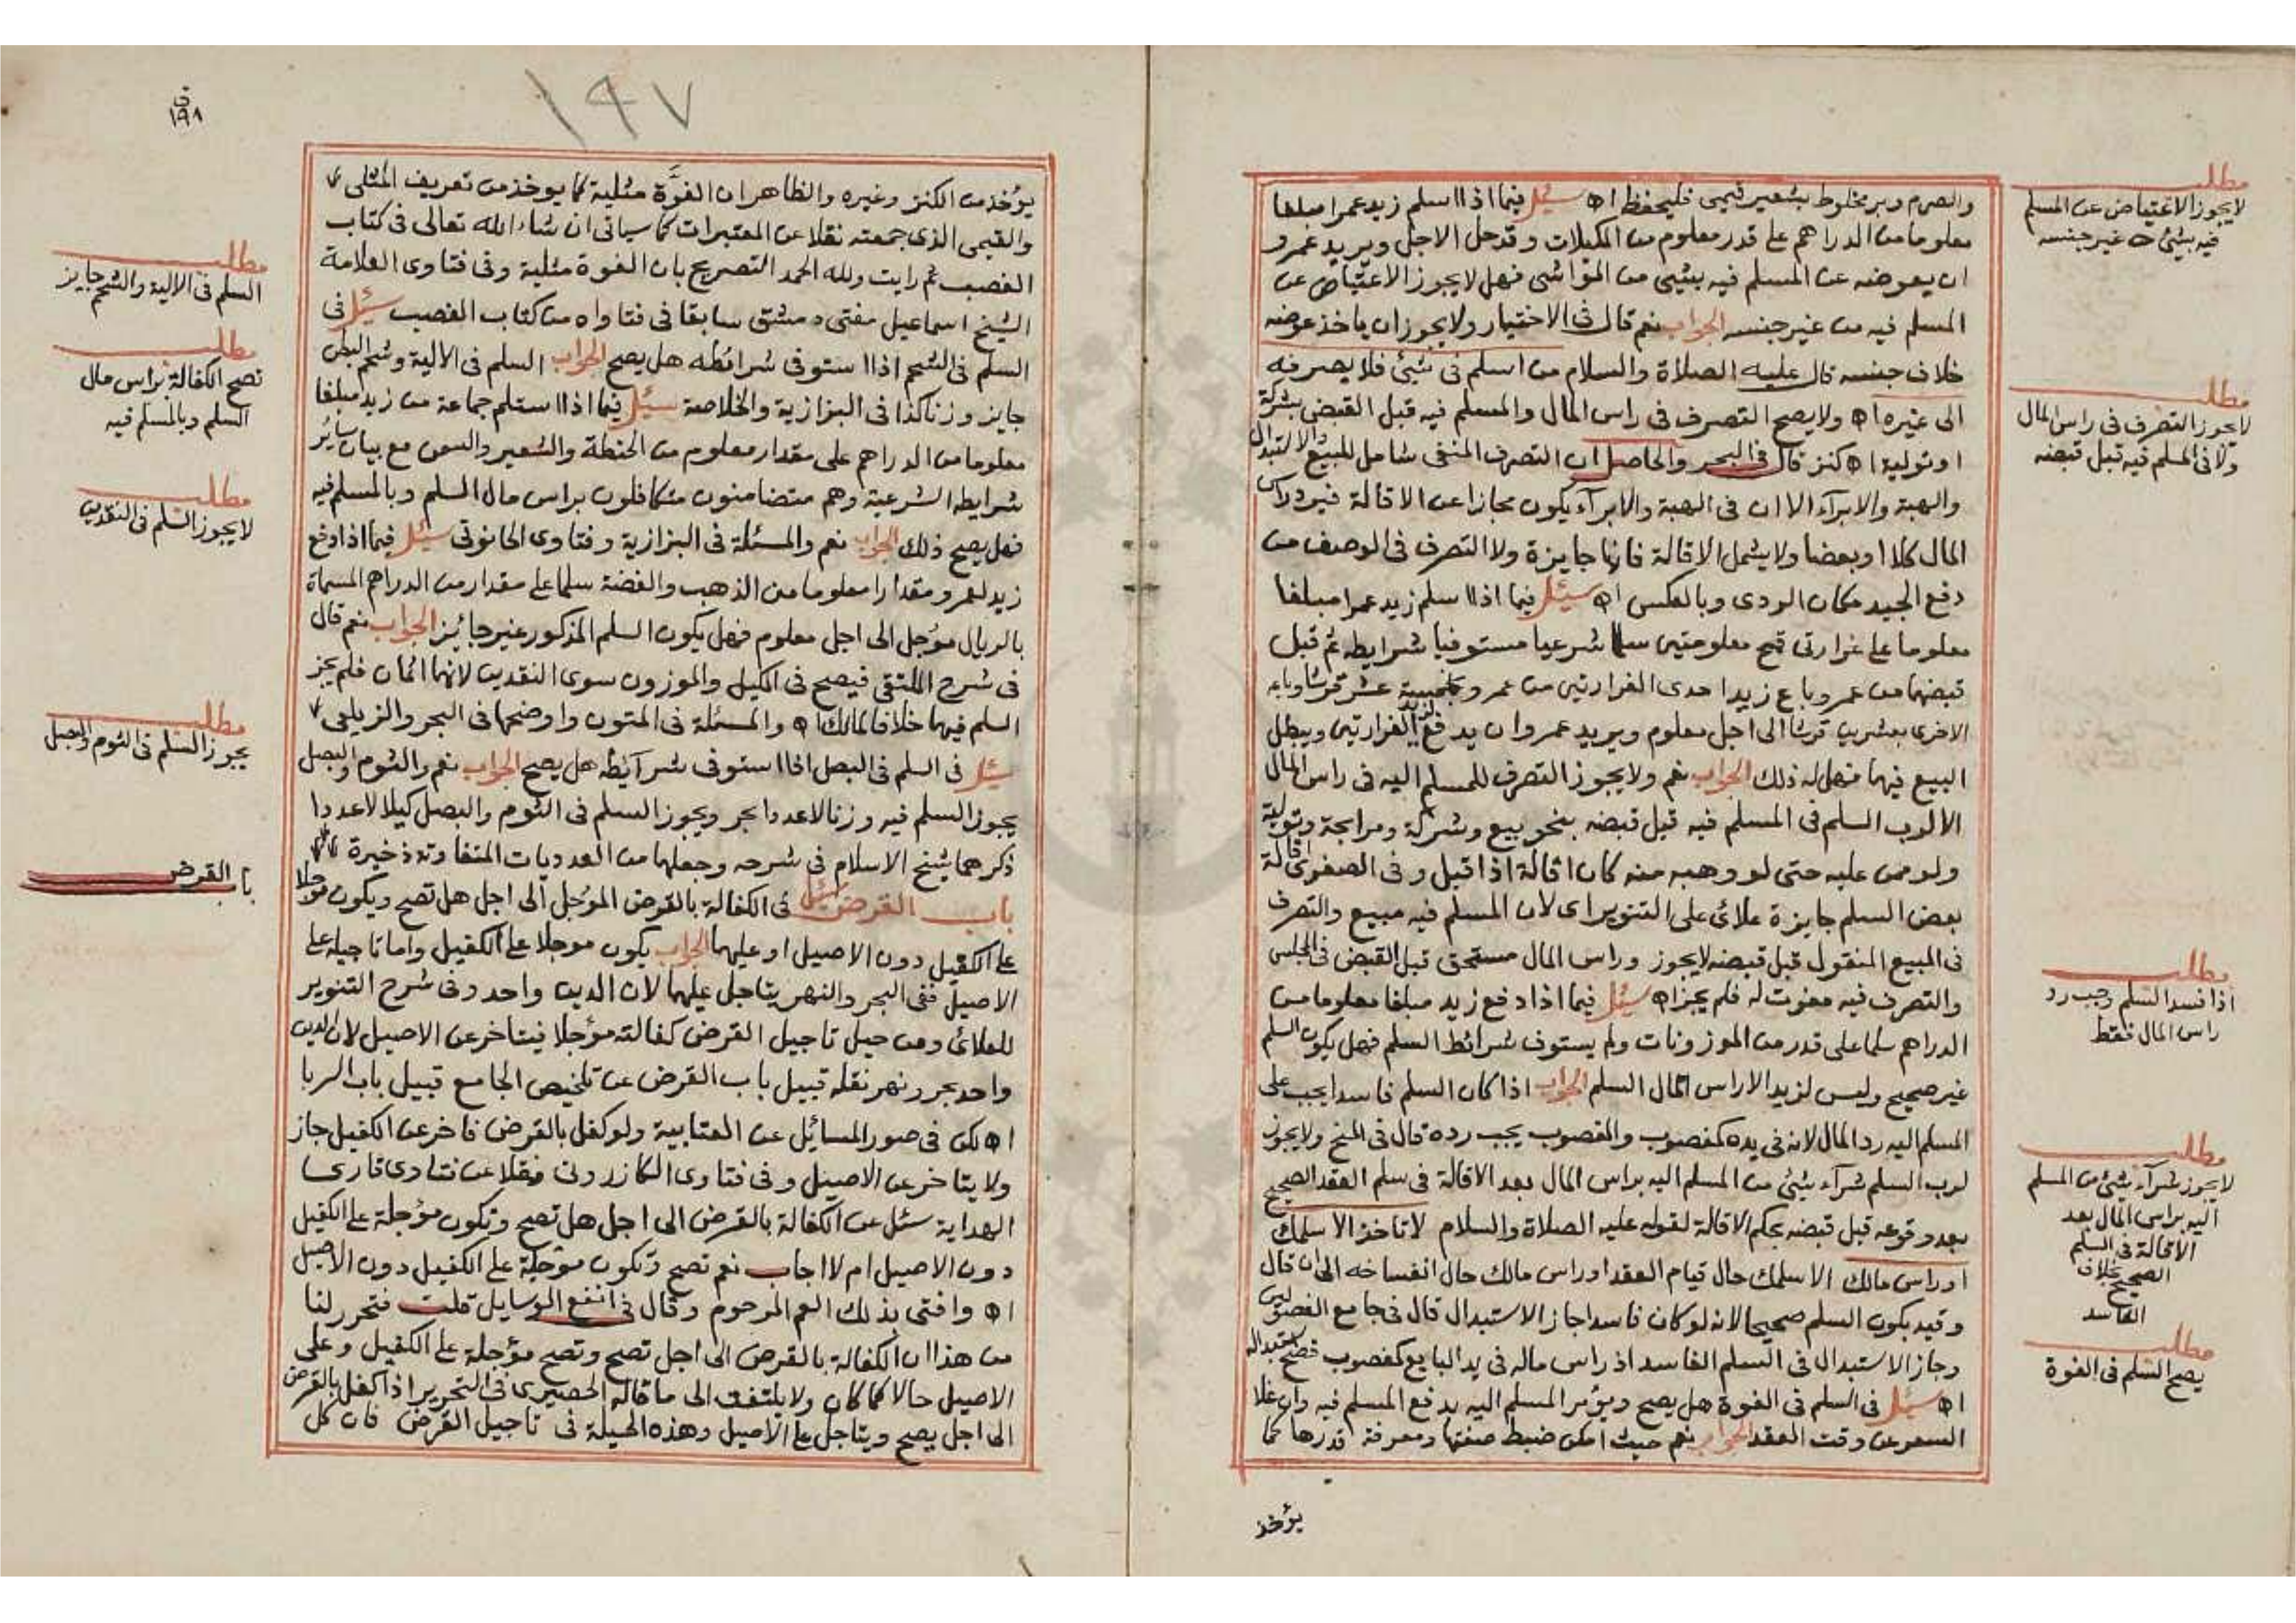 والصرم وبر مخلوط بشعير قيمى فليحفظ اه سئل فيما اذا اسلم زيد عمرا مبلغا
معلوما من الدراهم على قدر معلوم من المكيلات وقد حل الاجل ويريد عمرو
ان يعوضه عن المسلم فيه بشيى من المواشى فهل لا يجوز الاعتياض عن
المسلم فيه من غير جنسه الجواب نعم قال فى الاختيار ولا يجوز ان ياخذ عوضه
خلاف جنسه قال عليه الصلاة والسلام من اسلم فى شيئ فلا يصرفه
الى غيره اه ولا يصح التصرف فى راس المال والمسلم فيه قبل القبض بشركة
او تولية اه كنز قال فى البحر والحاصل ان التصرف المنفى شامل للبيع والاستبدال
والهبة والابرآء الا ان فى الهبة والابرآء يكون مجازا عن الاقالة فيرد راس
المال كلا او بعضا ولا يشمل الاقالة فانها جايزة ولا التصرف فى الوصف من
دفع الجيد مكان الردى وبالعكس اه سئل فيما اذا اسلم زيد عمرا مبلغا
معلوما على غرارتى قمح معلومتين سلما شرعيا مستوفيا شرايطه ثم قبل
قبضهما من عمرو باع زيد احدى الغرارتين من عمرو بخمسة عشر قرشا وباعه
الاخرى بعشرين قرشا الى اجل معلوم ويريد عمرو ان يدفع لزيد الغرارتين ويبطل
البيع فيهما فهل له ذلك الجواب نعم ولا يجوز التصرف للمسلم اليه فى راس المال
الا لرب السلم فى المسلم فيه قبل قبضه بنحو بيع وشركة ومرابحة وتولية
ولو ممن عليه حتى لو وهبه منه كان اقالة اذا قبل وفى الصغرى اقالة
بعض السلم جايزة علائى على التنوير اى لان المسلم فيه مبيع والتصرف
فى المبيع المنقول قبل قبضه لا يجوز وراس المال مستحق قبل القبض فى المجلس
والتصرف فيه مفوت له فلم يجز اه سئل فيما اذا دفع زيد مبلغا معلوما من
الدراهم سلما على قدر من الموزونات ولم يستوف شرائط السلم فهل يكون السلم
غير صحيح وليس لزيد الا راس المال السلم الجواب اذا كان السلم فاسدا يجب على
المسلم اليه رد المال لانه فى يده كمغصوب والمغصوب يجب رده قال فى المنح ولا يجوز
لرب السلم شرآء شيئ من المسلم اليه براس المال بعد الاقالة فى سلم العقد الصحيح
بعد وقوعه قبل قبضه بحكم الاقالة لقوله عليه الصلاة والسلام لا تاخذ الا سلمك
او راس مالك الا سلمك حال قيام العقد او راس مالك حال انفساخه الى ان قال
وقيد بكون السلم صحيحا لانه لو كان فاسدا جاز الاستبدال قال فى جامع الفصولين
وجاز الاستبدال فى السلم الفاسد اذ راس ماله فى يد البايع كمغصوب فصح استبداله
اه سئل فى السلم فى الفوة هل يصح ويؤمر المسلم اليه بدفع المسلم فيه وان غلا
السعر عن وقت العقد الجواب نعم حيث امكن ضبط صفتها ومعرفة قدرها كما
يؤخذ
مطلب
لا يجوز الاعتياض عن المسلم
فيه بشيئ من غير جنسه
مطلب
لا يجوز التصرف فى راس المال
ولا فى المسلم فيه قبل قبضه
مطلب
اذا فسد السلم وجب رد
راس المال فقط
مطلب
لا يجوز شرآء شيئ من المسلم
اليه براس المال بعد
الاقالة فى السلم
الصحيح بخلاف
الفاسد
مطلب
يصح السلم فى الفوة
١٩٧
ق
١٩٨
يؤخذ من الكنز وغيره والظاهر ان الفوة مثلية كما يوخذ من تعريف المثلى
والقيمى الذى جمعته نقلا عن المعتبرات كما سياتى ان شاء الله تعالى فى كتاب
الغصب ثم رايت ولله الحمد التصريح بان الفوة مثلية وفى فتاوى العلامة
الشيخ اسماعيل مفتى دمشق سابقا فى فتاواه من كتاب الغصب سئل فى
السلم فى الشحم اذا استوفى شرائطه هل يصح الجواب السلم فى الالية وشحم البطن
جايز وزنا كذا فى البزازية والخلاصة سئل فيما اذا استلم جماعة من زيد مبلغا
معلوما من الدراهم على مقدار معلوم من الحنطة والشعير والسمن مع بيان سائر
شرايطه الشرعية وهم متضامنون متكافلون براس مال السلم وبالمسلم فيه
فهل يصح ذلك الجواب نعم والمسئلة فى البزازية وفتاوى الحانوتى سئل فيما اذا دفع
زيد لعمرو مقدارا معلوما من الذهب والفضة سلما على مقدار من الدراهم المسماة
بالريال مؤجل الى اجل معلوم فهل يكون السلم المذكور غير جائز الجواب نعم قال
فى شرح الملتقى فيصح فى المكيل والموزون سوى النقدين لانهما اثمان فلم يجز
السلم فيهما خلافا لمالك اه والمسئلة فى المتون واوضحها فى البحر والزيلعى
سئل فى السلم فى البصل اذا استوفى شرآئطه هل يصح الجواب نعم والثوم والبصل
يجوز السلم فيه وزنا لا عددا بحر ويجوز السلم فى الثوم والبصل كيلا لا عددا
ذكرهما شيخ الاسلام فى شرحه وجعلهما من العدديات المتفاوتة ذخيرة
باب القرض سئل فى الكفالة بالقرض المؤجل الى اجل هل تصح ويكون مؤجلا
على الكفيل دون الاصيل او عليهما الجواب يكون موجلا على الكفيل واما تاجيله على
الاصيل ففى البحر والنهر يتاجل عليهما لان الدين واحد وفى شرح التنوير
للعلائى ومن حيل تاجيل القرض كفالته مؤجلا فيتاخر عن الاصيل لان الدين
واحد بحر ونهر نقله قبيل باب القرض عن تلخيص الجامع قبيل باب الربا
اه لكن فى صور المسائل عن العتابية ولو كفل بالقرض فاخر عن الكفيل جاز
ولا يتاخر عن الاصيل وفى فتاوى الكازرونى نقلا عن فتاوى قارى
الهداية سئل عن الكفالة بالقرض الى اجل هل تصح وتكون مؤجلة على الكفيل
دون الاصيل ام لا اجاب نعم تصح وتكون مؤجلة على الكفيل دون الاصيل
اه وافتى بذلك العم المرحوم وقال فى انفع الوسايل قلت فتحرر لنا
من هذا ان الكفالة بالقرض الى اجل تصح وتصح مؤجلة على الكفيل وعلى
الاصيل حالا كما كان ولا يلتفت الى ما قاله الحصيرى فى التحرير اذا كفل بالقرض
الى اجل يصح ويتاجل على الاصيل وهذه الحيلة فى تاجيل القرض فان كل
مطلب
السلم فى الالية والشحم جايز
مطلب
تصح الكفالة براس مال
السلم وبالمسلم فيه
مطلب
لا يجوز السلم فى النقدين
مطلب
يجوز السلم فى الثوم والبصل
باب القرض